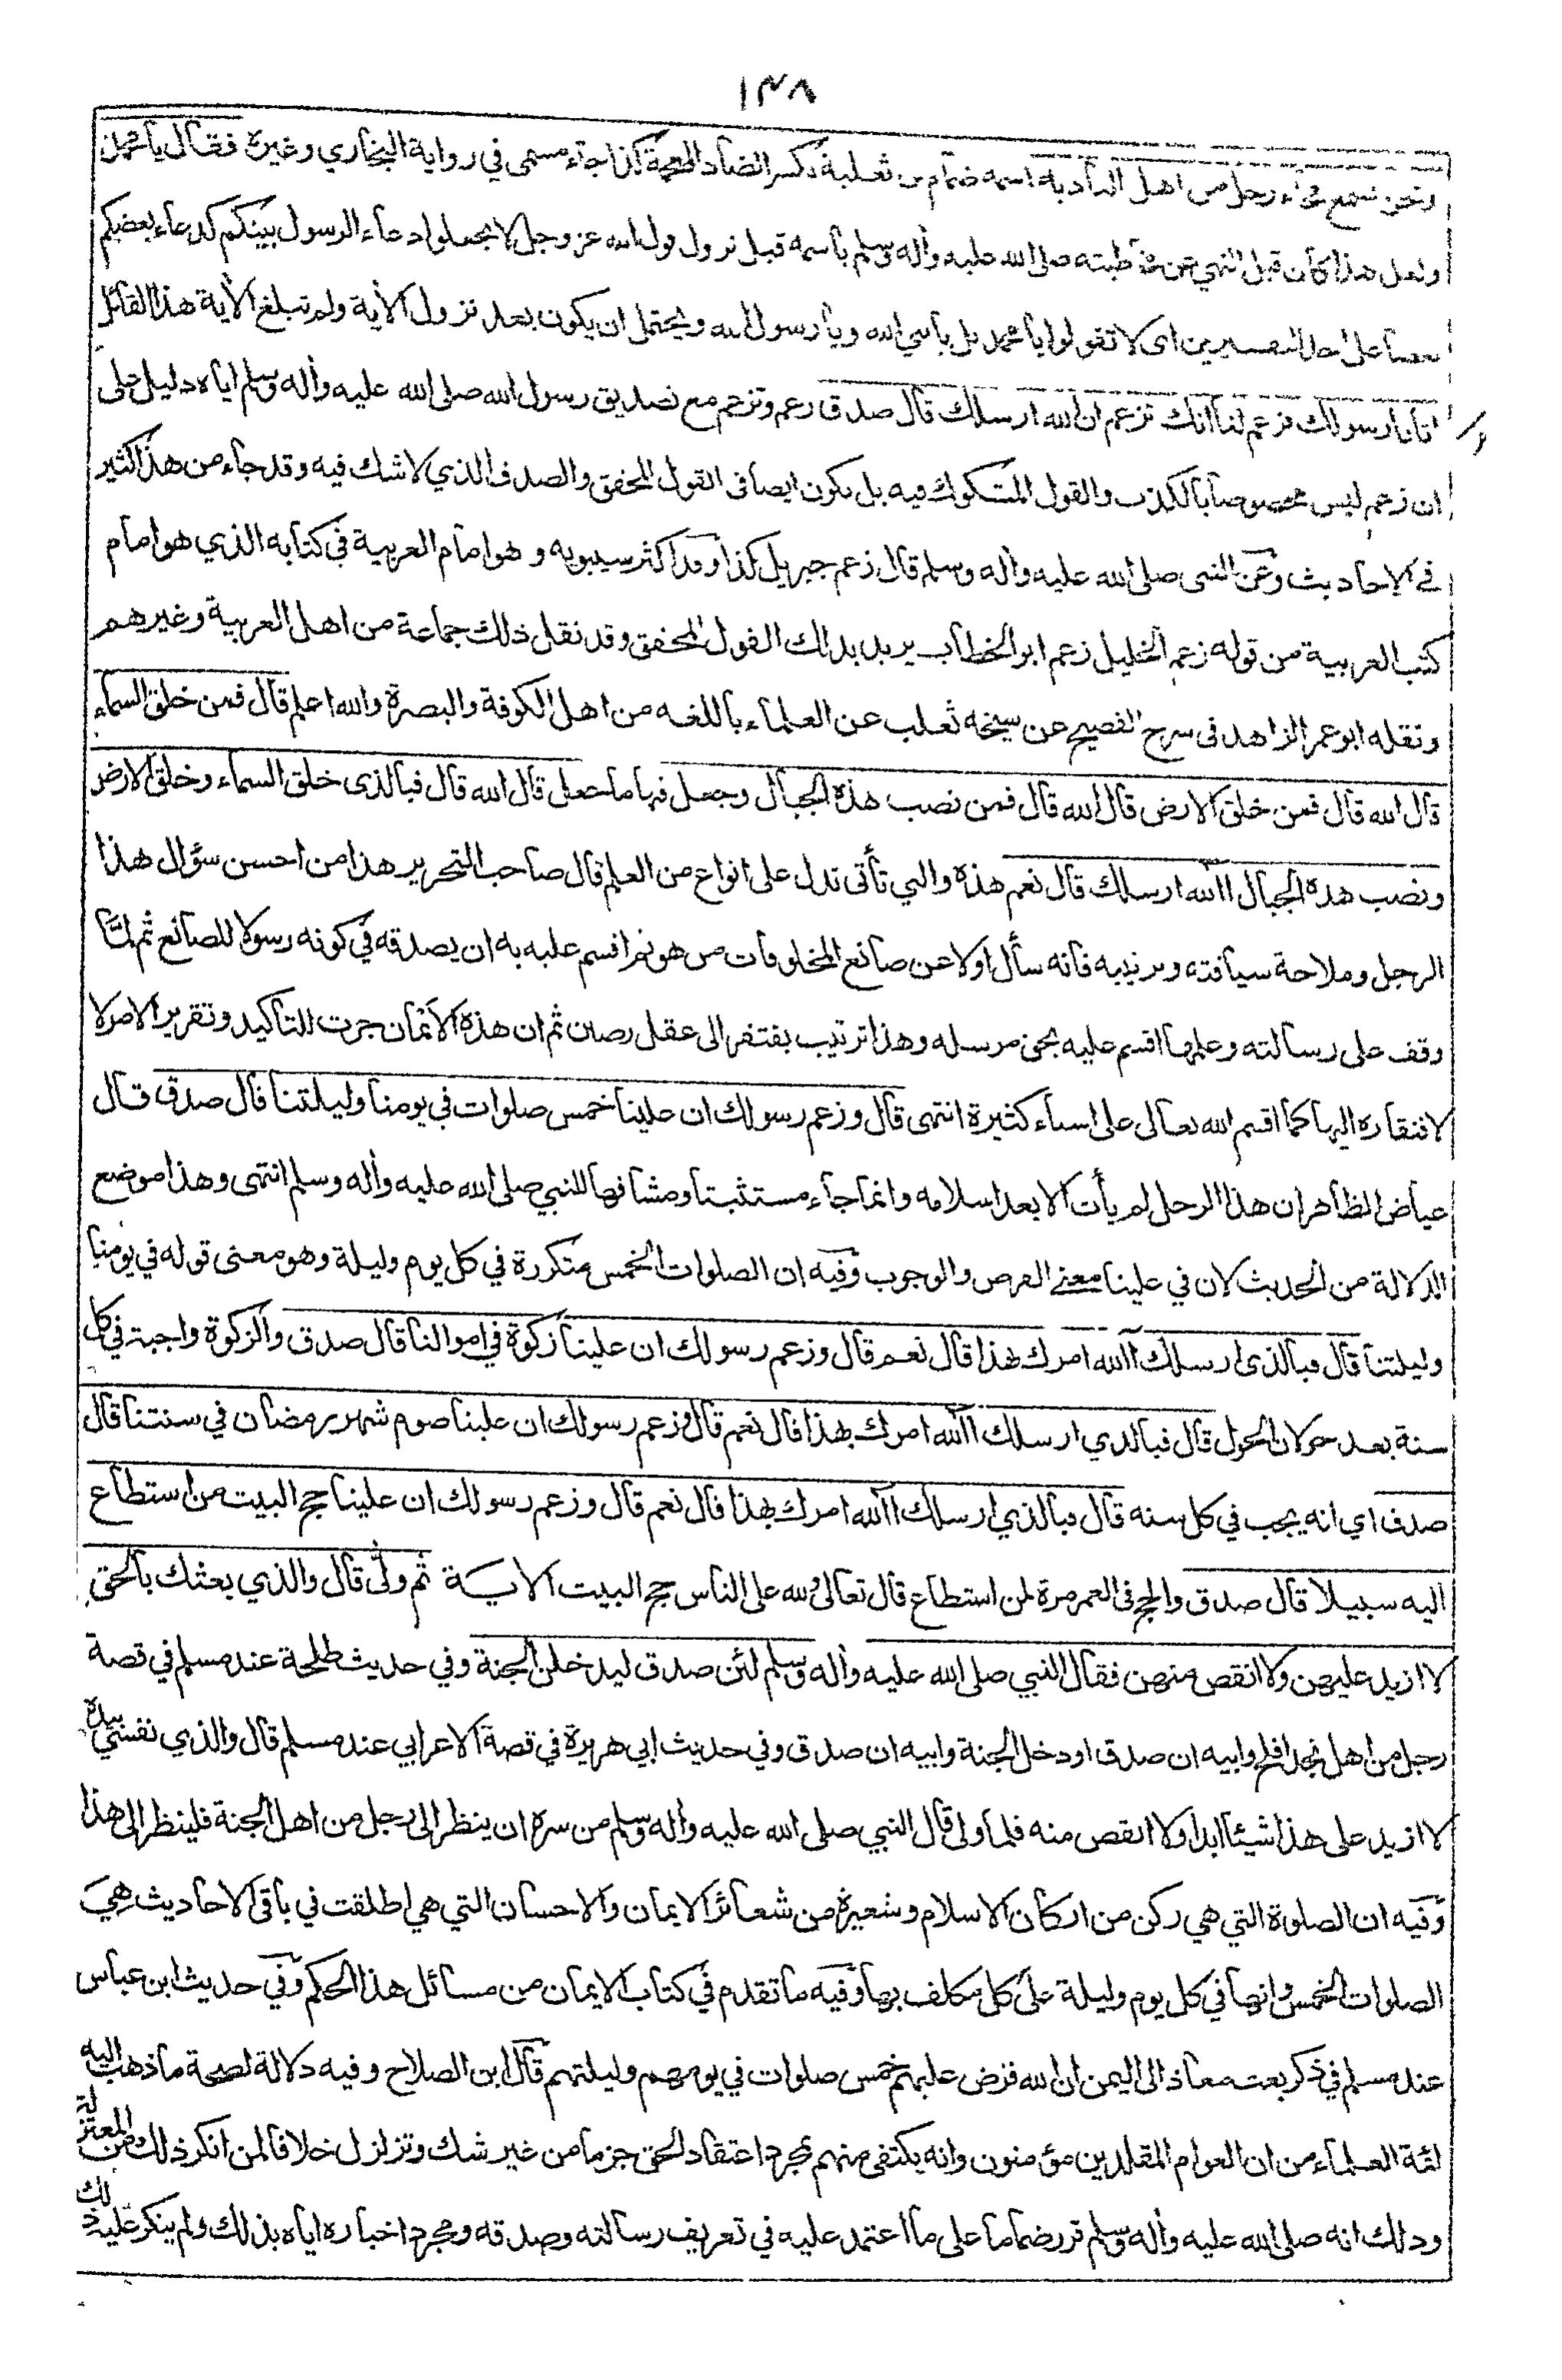 ١٣٨
ونحن نسمع فجاء رجل من اهل البادية اسمه ضمام بن ثعلبة بكسر الضاد المعجمة كذا جاء مسمى في رواية البخاري وغيره فقال يا محمد
ولعل هذا كان قبل النهي عن مخاطبته صلى الله عليه وأله وسلم باسمه قبل نزول قول الله عز وجل لا تجعلوا دعاء الرسول بينكم كدعاء بعضكم
بعضا على احد التفسيرين اى لا تقولوا يا محمد بل يا نبي الله ويا رسول الله ويحتمل ان يكون بعد نزول الأية ولم تبلغ الأية هذا القائل
اتانا رسولك فزعم لنا انك تزعم ان الله ارسلك قال صدق زعم وتزعم مع تصديق رسول الله صلى الله عليه وأله وسلم اياه دليل على
ان زعم ليس مخصوصا بالكذب والقول المشكوك فيه بل يكون ايضا فى القول المحقق والصدق الذي لا شك فيه وقد جاء من هذا كثير
في الاحاديث وعن النبى صلى الله عليه وأله وسلم قال زعم جبريل كذا وقد اكثر سيبويه وهو امام العربية في كتابه الذي هو امام
كتب العربية من قوله زعم الخليل زعم ابو الخطاب يريد بذلك القول المحقق وقد نقل ذلك جماعة من اهل العربية وغيرهم
ونقله ابو عمر الزاهد فى شرح الفصيح عن شيخه ثعلب عن العلماء باللغة من اهل الكوفة والبصرة والله اعلم قال فمن خلق السماء
قال الله قال فمن خلق الارض قال الله قال فمن نصب هذه الجبال وجعل فيها ما جعل قال الله قال فبالذى خلق السماء وخلق الارض
ونصب هذه الجبال أالله ارسلك قال نعم هذه والتي تأتى تدل على انواع من العلم قال صاحب التحرير هذا من احسن سؤال هذا
الرجل وملاحة سياقته وترتيبه فانه سأل اولا عن صانع المخلوقات من هو ثم اقسم عليه به ان يصدقه في كونه رسولا للصانع ثم لما
وقف على رسالته وعلمها اقسم عليه بحق مرسله وهذا ترتيب يفتقر الى عقل رصين ثم ان هذه الأيمان جرت للتاكيد وتقرير الامر لا
لافتقاره اليها كما اقسم الله تعالى على اشياء كثيرة انتهى قال وزعم رسولك ان علينا خمس صلوات في يومنا وليلتنا قال صدق قال
عياض الظاهر ان هذا الرجل لم يأت الا بعد اسلامه وانما جاء مستثبتا ومشافها للنبي صلى الله عليه وأله وسلم انتهى وهذا موضع
الدلالة من الحديث لان في علينا معنى الفرض والوجوب وفيه ان الصلوات الخمس متكررة في كل يوم وليلة وهو معنى قوله في يومنا
وليلتنا قال فبالذى ارسلك أالله امرك بهذا قال نعم قال وزعم رسولك ان علينا زكوة في اموالنا قال صدق والزكوة واجبة في كل
سنة بعد حولان الحول قال فبالذي ارسلك أالله امرك بهذا قال نعم قال وزعم رسولك ان علينا صوم شهر رمضان في سنتنا قال
صدق اي انه يجب في كل سنه قال فبالذي ارسلك أالله امرك بهذا قال نعم قال وزعم رسولك ان علينا حج البيت من استطاع
اليه سبيلا قال صدق والحج فى العمر مرة لمن استطاع قال تعالى ولله على الناس حج البيت الأية ثم ولى قال والذي بعثك بالحق
لا ازيد عليهن ولا انقص منهن فقال النبي صلى الله عليه وأله وسلم لئن صدق ليدخلن الجنة وفي حديث طلحة عند مسلم في قصة
رجل من اهل نجد افلح وابيه ان صدق او دخل الجنة وابيه ان صدق وفي حديث ابي هريرة في قصة الاعرابي عند مسلم قال والذي نفسي بيده
لا ازيد على هذا شيئا ابدا ولا انقص منه فلما ولى قال النبي صلى الله عليه وأله وسلم من سره ان ينظر الى رجل من اهل الجنة فلينظر الى هذا
وفيه ان الصلوة التي هي ركن من اركان الاسلام وشعيرة من شعائر الايمان والاحسان التي هي اطلقت في باقى الاحاديث هي
الصلوات الخمس وانها في كل يوم وليلة على كل مكلف بها وفيه ما تقدم في كتاب الايمان من مسائل هذا الحكم وفي حديث ابن عباس
عند مسلم في ذكر بعث معاذ الى اليمن ان الله فرض عليهم خمس صلوات في يومهم وليلتهم قال ابن الصلاح وفيه دلالة لصحة ما ذهب اليه
ائمة العلماء من ان العوام المقلدين مؤمنون وانه يكتفى منهم بمجرد اعتقاد الحق جزما من غير شك وتزلزل خلافا لمن انكر ذلك من المعتزلة
وذلك انه صلى الله عليه وأله وسلم قرر ضماما على ما اعتمد عليه في تعريف رسالته وصدقه ومجرد اخباره اياه بذلك ولم ينكر عليه ذلك